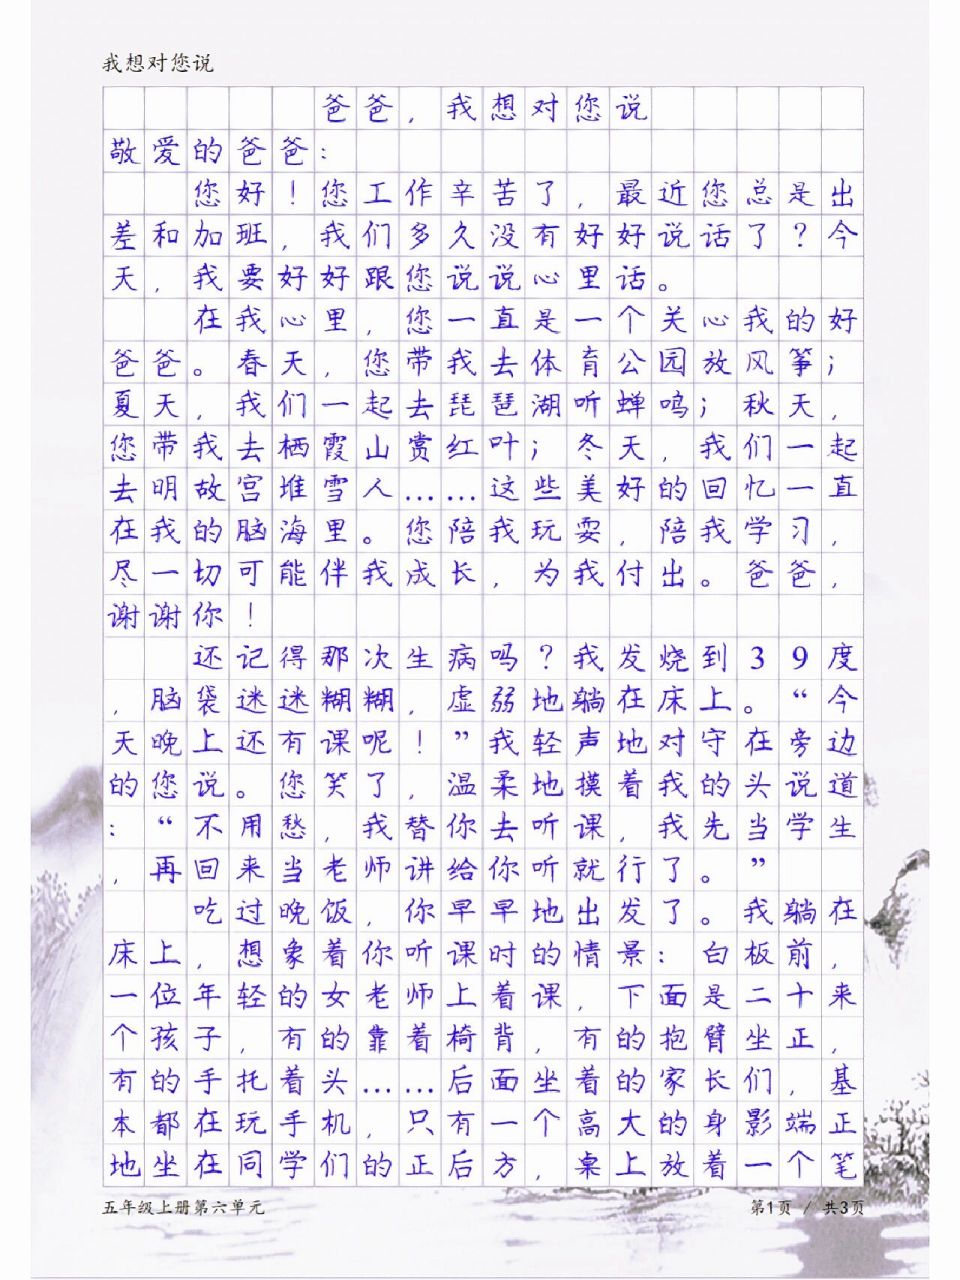 我想对您说
爸爸，我想对您说
敬爱的爸爸：
您好！您工作辛苦了，最近您总是出
差和加班，我们多久没有好好说话了？今
天，我要好好跟您说说心里话。
在我心里，您一直是一个关心我的好
爸爸。春天，您带我去体育公园放风筝；
夏天，我们一起去琵琶湖听蝉鸣；秋天，
您带我去栖霞山赏红叶；冬天，我们一起
去明故宫堆雪人……这些美好的回忆一直
在我的脑海里。您陪我玩耍，陪我学习，
尽一切可能伴我成长，为我付出。爸爸，
谢谢你！
还记得那次生病吗？我发烧到39度
，脑袋迷迷糊糊，虚弱地躺在床上。“今
天晚上还有课呢！”我轻声地对守在旁边
的您说。您笑了，温柔地摸着我的头说道
：“不用愁，我替你去听课，我先当学生
，再回来当老师讲给你听就行了。”
吃过晚饭，你早早地出发了。我躺在
床上，想象着你听课时的情景：白板前，
一位年轻的女老师上着课，下面是二十来
个孩子，有的靠着椅背，有的抱臂坐正，
有的手托着头……后面坐着的家长们，基
本都在玩手机，只有一个高大的身影端正
地坐在同学们的正后方，桌上放着一个笔
五年级上册第六单元 第1页 / 共3页